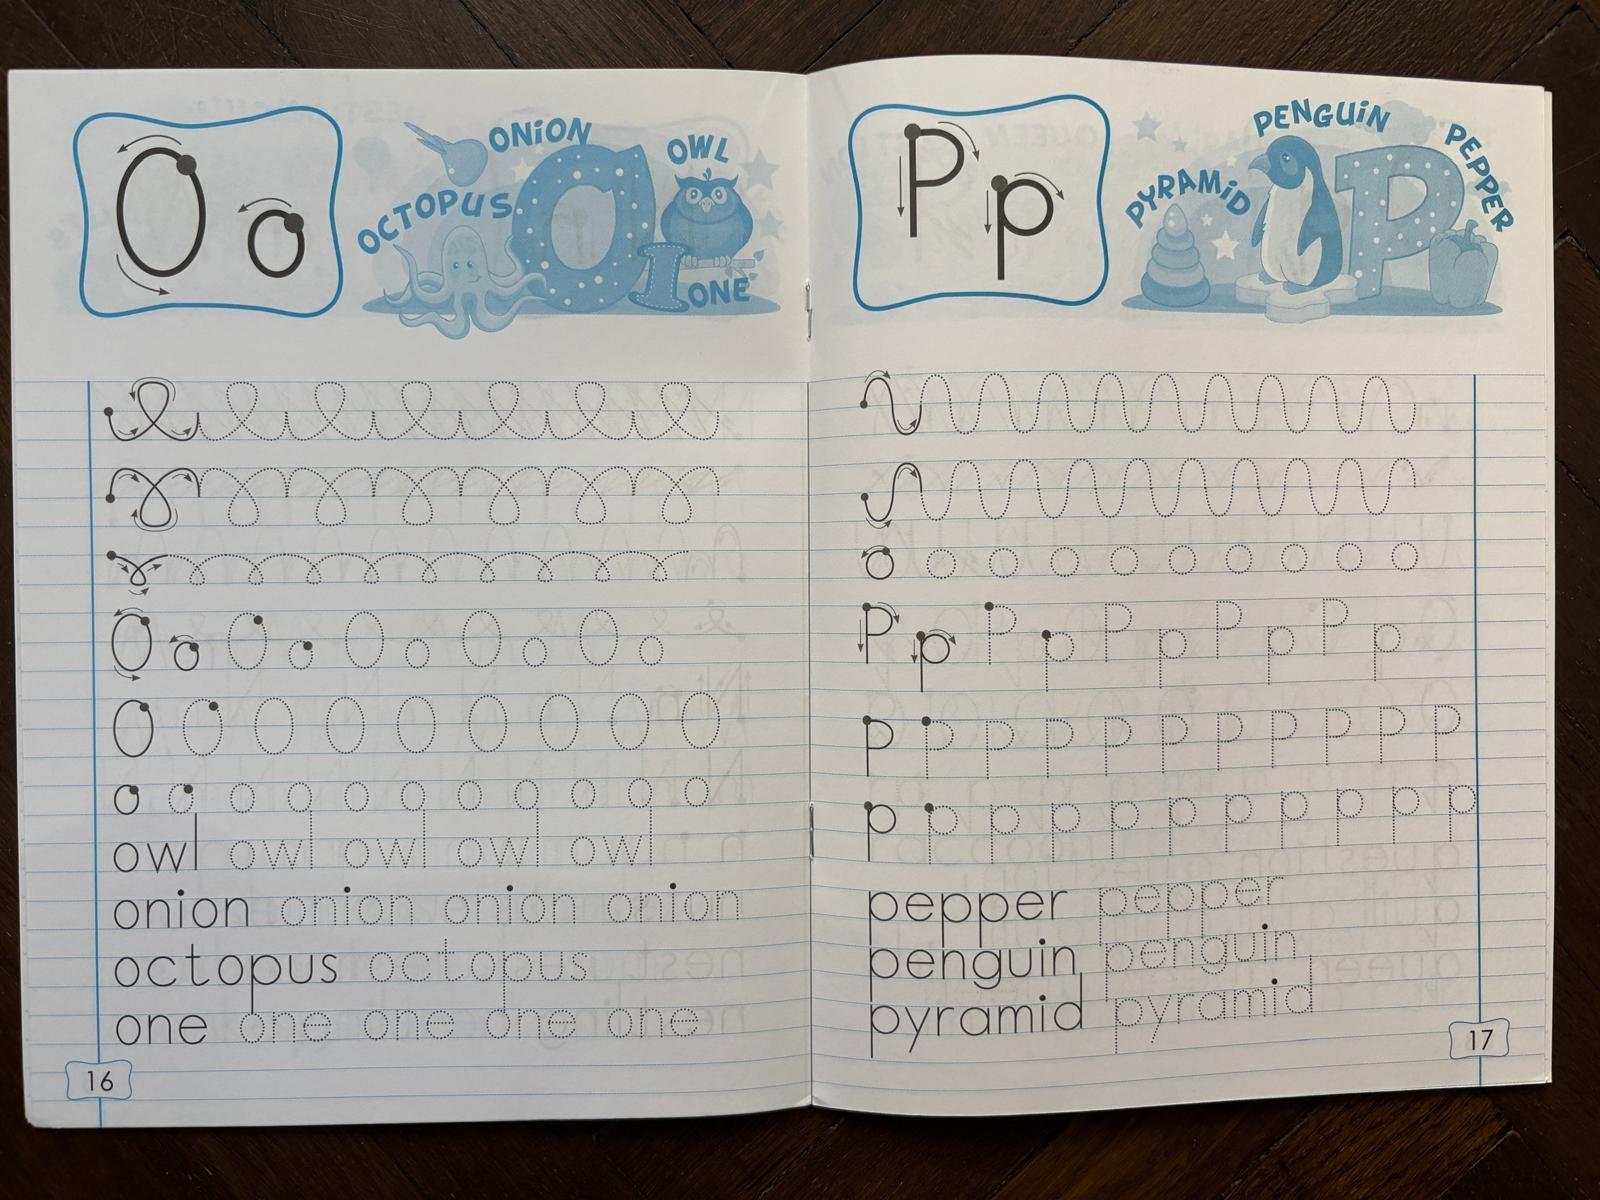 O o
ONiON
OWL
OCTOPUS
I
O
ONE
O o O o O o O o O o
O O O O O O O O O
o o o o o o o o o o o
owl owl owl owl owl
onion onion onion onion
octopus octopus
one one one one one
16
P p
PENGUiN
PEPPER
PYRAMiD
P
o o o o o o o o o o
P p P p P p P p P p
P P P P P P P P P P P
p p p p p p p p p p p
pepper pepper
penguin penguin
pyramid pyramid
17